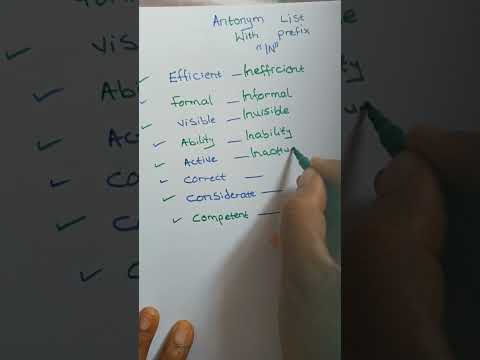 Antonym List
With prefix
"IN"
✓ Efficient — Inefficient
✓ formal — Informal
✓ visible — Invisible
✓ Ability — Inability
✓ Active — Inactiv
✓ correct —
✓ considerate —
✓ competent —